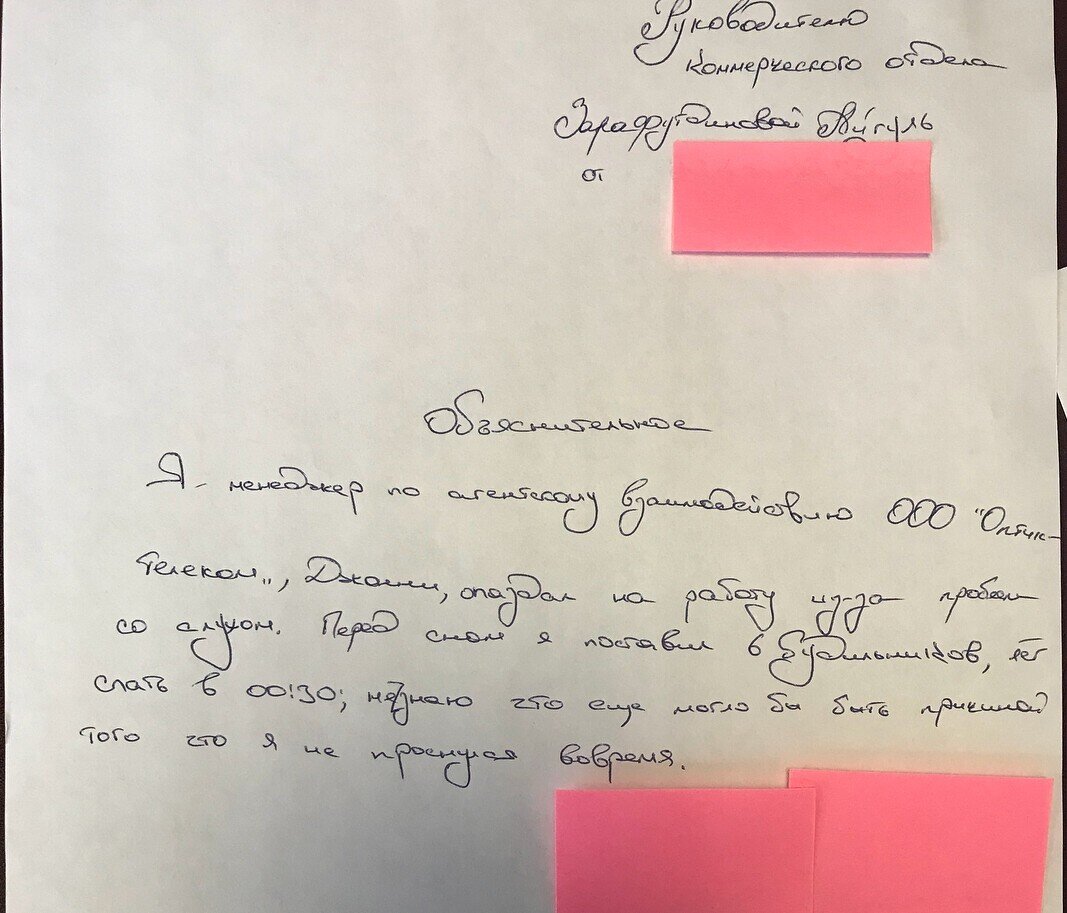 Руководителю
коммерческого отдела
Зарафутдиновой Айгуль
от
Объяснительное
Я - менеджер по агентскому взаимодействию ООО "Оптик-
Телеком", опаздал на работу из-за проблем
со слухом. Перед сном я поставил 6 будильников, лёг
спать в 00:30; незнаю что еще могло бы быть причиной
того что я не проснулся вовремя.